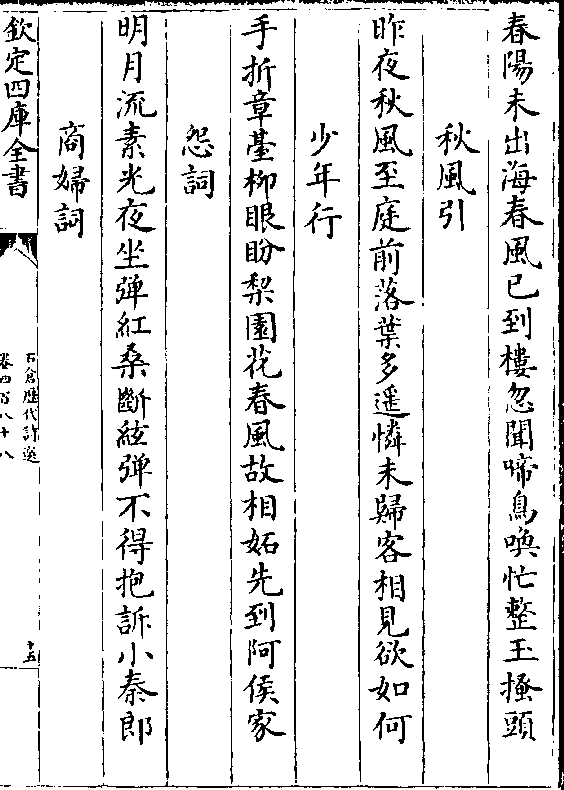 春陽未出海春風已到樓忽聞啼鳥喚忙整玉搔頭
秋風引
昨夜秋風至庭前落葉多遥憐未歸客相見欲如何
少年行
手折章臺柳眼盼梨園花春風故相妬先到阿侯家
怨詞
明月流素光夜坐弾紅桑斷絃弾不得抱訴小秦郎
商婦詞
欽定四庫全書
石倉歷代詩選
卷四百八十八
十五